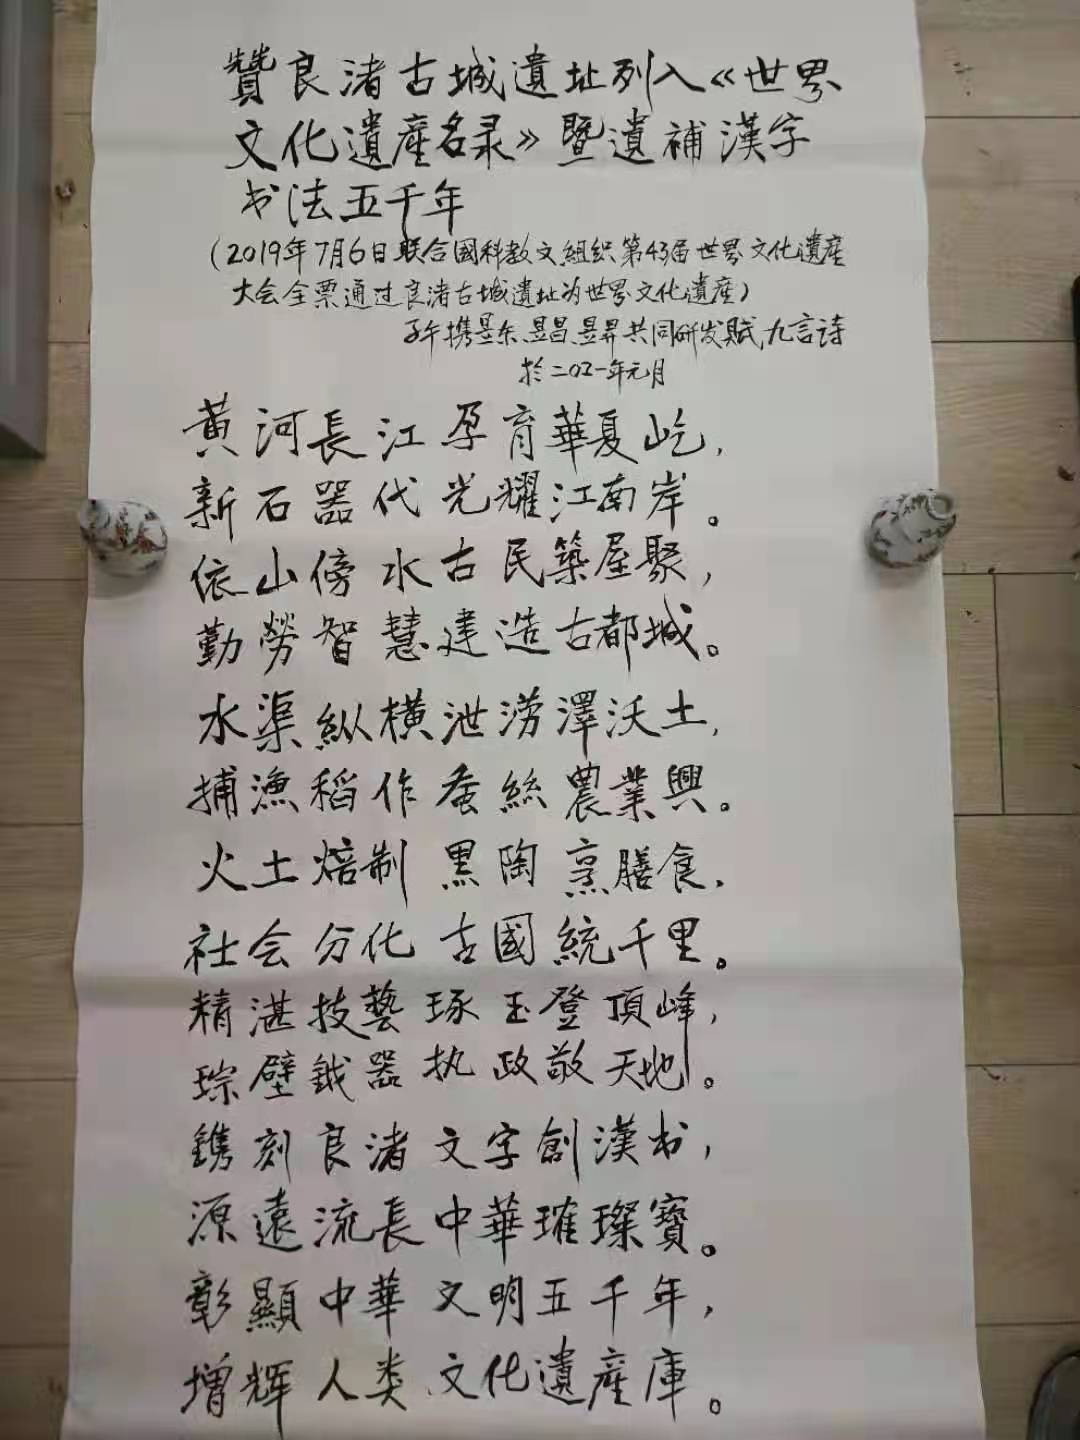 贊良渚古城遺址列入《世界
文化遺產名录》暨遺補漢字
书法五千年
(2019年7月6日联合國科教文組织第43届世界文化遺產
大会全票通过良渚古城遺址为世界文化遺產)
子午携昱东、昱昌、昱昇共同研发賦九言诗
於二〇二一年元月
黄河長江孕育華夏屹,
新石器代光耀江南岸。
依山傍水古民築屋聚,
勤勞智慧建造古都城。
水渠纵横泄涝澤沃土,
捕漁稻作蚕絲農業興。
火土焙制黑陶烹膳食,
社会分化古國統千里。
精湛技藝琢玉登頂峰,
琮璧鉞器执政敬天地。
鐫刻良渚文字創漢书,
源遠流長中華璀璨寶。
彰顯中華文明五千年,
增辉人类文化遺產庫。